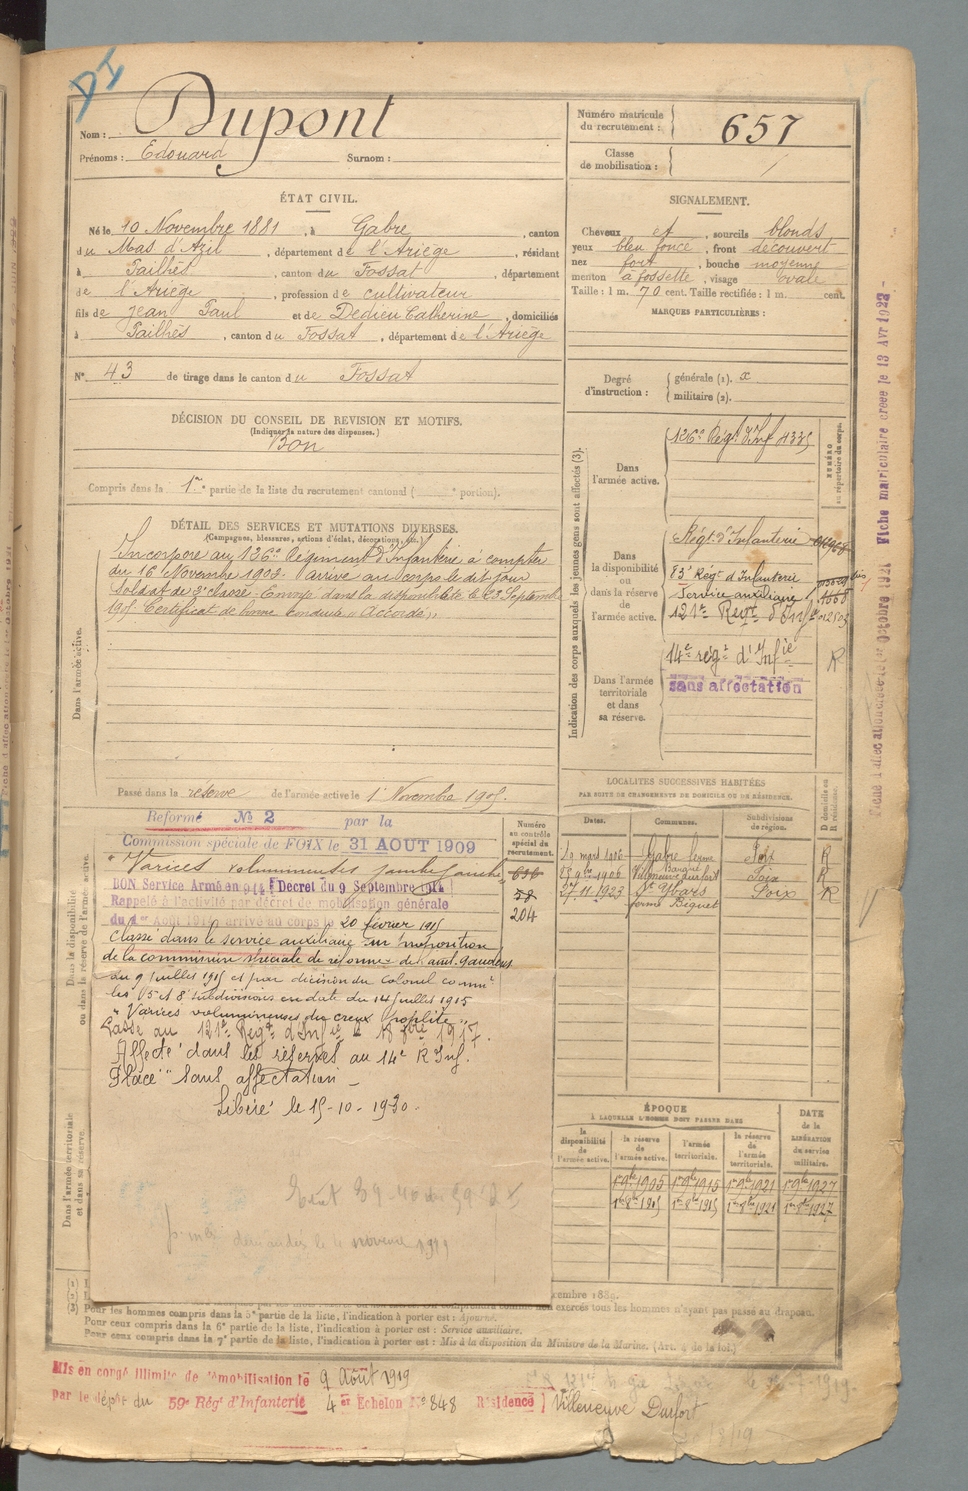 DI
Nom : Dupont
Prénoms : Edouard Surnom :
Numéro matricule du recrutement : 657
Classe de mobilisation :
ÉTAT CIVIL.
Né le 10 Novembre 1881, à Gabre, canton
du Mas d'Azil, département de l'Ariège, résidant
à Pailhès, canton du Fossat, département
de l'Ariège, profession de cultivateur
fils de Jean Paul et de Dedieu Catherine, domiciliés
à Pailhès, canton du Fossat, département de l'Ariège
N° 43 de tirage dans le canton du Fossat
SIGNALEMENT.
Cheveux et, sourcils blonds
yeux bleu foncé, front découvert
nez fort, bouche moyenne
menton à fossette, visage ovale
Taille : 1 m. 70 cent. Taille rectifiée : 1 m. cent.
MARQUES PARTICULIÈRES :
Degré d'instruction : générale (1). x
militaire (2).
DÉCISION DU CONSEIL DE REVISION ET MOTIFS.
(Indiquer la nature des dispenses.)
Bon
Compris dans la 1re partie de la liste du recrutement cantonal ( portion).
DÉTAIL DES SERVICES ET MUTATIONS DIVERSES.
(Campagnes, blessures, actions d'éclat, décorations, etc.)
Dans l'armée active.
Incorporé au 126e Régiment d'Infanterie à compter
du 16 Novembre 1903. arrivé au corps le dit jour
Soldat de 2e classe. Envoyé dans la disponibilité le 23 Septembre
1905. Certificat de bonne conduite "Accordé"
Passé dans la réserve de l'armée active le 1 Novembre 1905.
Indication des corps auxquels les jeunes gens sont affectés (3).
NUMÉRO au répertoire du corps.
Dans l'armée active.
126e Régt d'Inf 4335
Dans la disponibilité ou dans la réserve de l'armée active.
Régt d'Infanterie
83e Régt d'Infanterie
Service auxiliaire
121e Regt d'Infie
Dans l'armée territoriale et dans sa réserve.
14e régt d'Infie R
sans affectation
Dans la disponibilité ou dans la réserve de l'armée active.
Réformé N° 2 par la
Commission spéciale de FOIX le 31 AOUT 1909
"Varices volumineuses jambe gauche"
BON Service Armé en 914 Décret du 9 Septembre 1914
Rappelé à l'activité par décret de mobilisation générale
du 1er Août 1914 arrivé au corps le 20 février 1915
Classé dans le service auxiliaire sur proposition
de la commission spéciale de réforme de Saint-Gaudens
du 9 juillet 1915 et par décision du Colonel comm
les 15 et 8e subdivisions en date du 14 juillet 1915
"Varices volumineuses du creux poplité"
Passé au 121e Regt d'Infie le 18 1917.
Affecté dans les réserves au 14e R Inf.
Placé "Sans affectation
Libéré le 15-10-1930.
demandés le 4 novembre 1919
Numéro au contrôle spécial du recrutement.
636
58
204
LOCALITÉS SUCCESSIVES HABITÉES
PAR SUITE DE CHANGEMENTS DE DOMICILE OU DE RÉSIDENCE.
Dates. Communes. Subdivisions de région. D domicile ou R résidence.
19 mars 1906 Gabre ferme Foix R
25 9bre 1906 Villeneuve durfort Foix R
27.11.1923 St Ybars ferme Biguet Foix R
ÉPOQUE
À LAQUELLE L'HOMME DOIT PASSER DANS
la disponibilité de l'armée active. la réserve de l'armée active. l'armée territoriale. la réserve de l'armée territoriale.
DATE de la LIBÉRATION du service militaire.
1er 9bre 1905 1er 9bre 1915 1er 9bre 1921 1er 9bre 1927
1er 8bre 1905 1er 8bre 1915 1er 8bre 1921 1er 8bre 1927
Dans l'armée territoriale et dans sa réserve.
(1)
(2)
(3) Pour les hommes compris dans la 5e partie de la liste, l'indication à porter est : Ajourné.
exercés tous les hommes n'ayant pas passé au drapeau.
Pour ceux compris dans la 6e partie de la liste, l'indication à porter est : Service auxiliaire.
Pour ceux compris dans la 7e partie de la liste, l'indication à porter est : Mis à la disposition du Ministre de la Marine. (Art. 4 de la loi.)
Mis en congé illimité de démobilisation le 9 Août 1919
par le dépôt du 59e Rég' d'Infanterie 4er Echelon N° 848 Résidence Villeneuve Durfort
Fiche d'affectation créée le 1er Octobre 1921 Fiche matriculaire créée le 13 Avr 1923